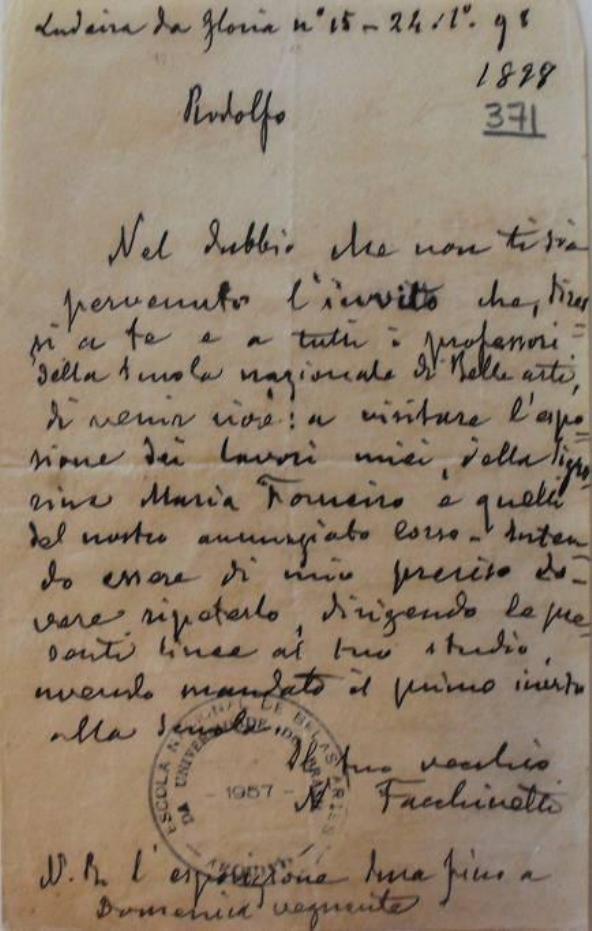 Ladeira da Gloria nº 15 - 24. 1º. 98
1898
371
Rodolfo
Nel dubbio che non ti sia
pervenuto l'invito che, dires=
si a te e a tutti i professori
della Scuola nazionale di Belle arti,
di venir cioè: a visitare l'espo=
sizione dei lavori miei, della Signo=
rina Maria Forneiro e quelli
del nostro annunziato corso - Inten=
do essere di mio preciso do=
vere ripeterlo, dirigendo le pre=
senti linee al tuo studio,
avendo mandato il primo invito
alla Scuola.
Il tuo vecchio
N. Facchinetti
ESCOLA NACIONAL DE BELAS ARTES
DA UNIVERSIDADE DO BRASIL
- 1957 -
ARQUIVO
N.B. l'esposizione dura fino a
Domenica vegnente